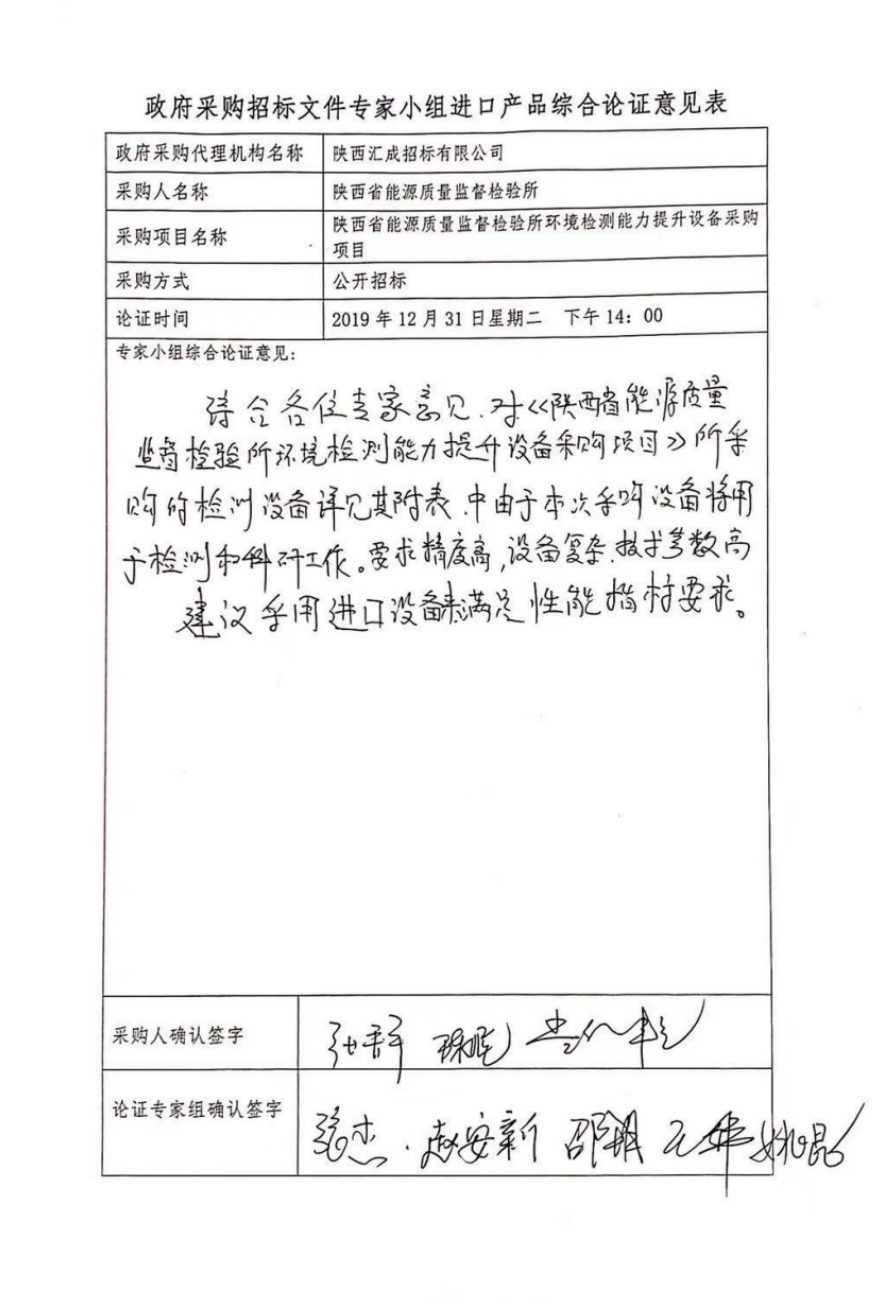 政府采购招标文件专家小组进口产品综合论证意见表
政府采购代理机构名称 陕西汇成招标有限公司
采购人名称 陕西省能源质量监督检验所
采购项目名称 陕西省能源质量监督检验所环境检测能力提升设备采购
项目
采购方式 公开招标
论证时间 2019 年 12 月 31 日星期二 下午 14：00
专家小组综合论证意见：
合各位专家意见，对《陕西省能源质量
监督检验所环境检测能力提升设备采购项目》所采
购的检测设备详见其附表，中由于本次采购设备将用
于检测和科研工作。要求精度高，设备复杂，技术参数高
建议采用进口设备来满足性能指标要求。
采购人确认签字
论证专家组确认签字 杰 赵安新 邵